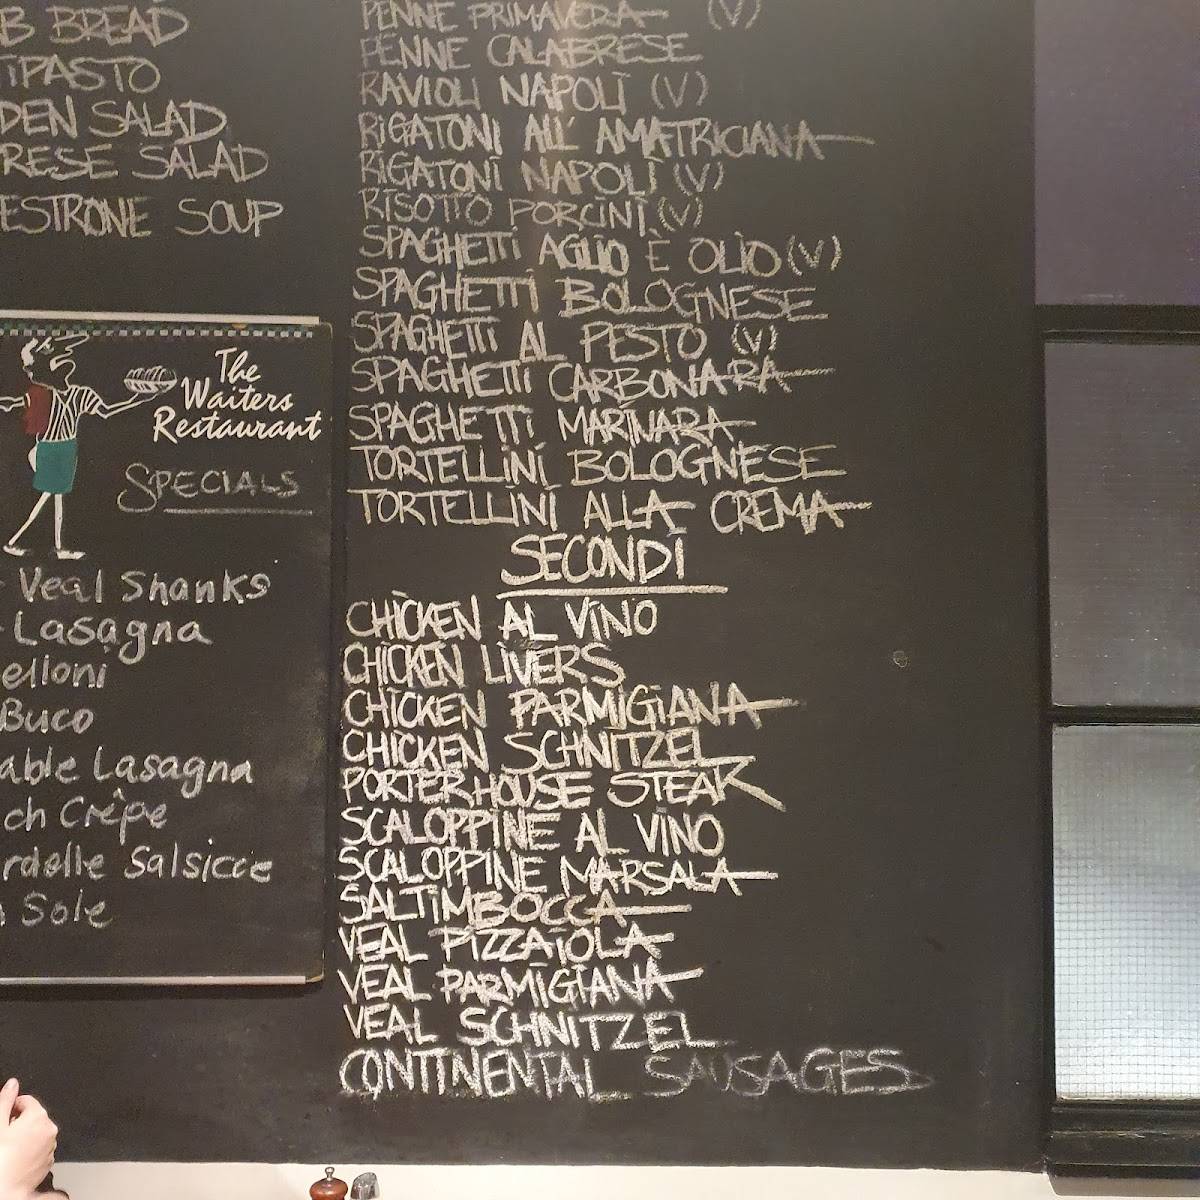 BREAD
SALAD
SALAD
SOUP
PENNE PRIMAVERA (V)
PENNE CALABRESE
RAVIOLI NAPOLI (V)
RIGATONI ALL' AMATRICIANA
RIGATONI NAPOLI (V)
RISOTTO PORCINI (V)
SPAGHETTI AGLIO È OLIO (V)
SPAGHETTI BOLOGNESE
SPAGHETTI AL PESTO (V)
SPAGHETTI CARBONARA
SPAGHETTI MARINARA
TORTELLINI BOLOGNESE
TORTELLINI ALLA CREMA
SECONDI
CHICKEN AL VINO
CHICKEN LIVERS
CHICKEN PARMIGIANA
CHICKEN SCHNITZEL
PORTERHOUSE STEAK
SCALOPPINE AL VINO
SCALOPPINE MARSALA
SALTIMBOCCA
VEAL PIZZAIOLA
VEAL PARMIGIANA
VEAL SCHNITZEL
CONTINENTAL SAUSAGES
The
Waiters
Restaurant
SPECIALS
Veal Shanks
Lasagna
elloni
Buco
able Lasagna
ch Crêpe
rdelle Salsicce
Sole